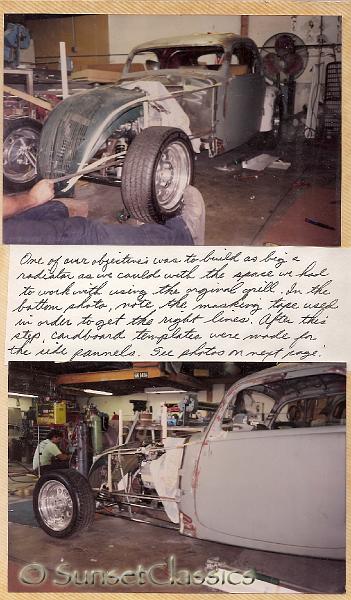 One of our objective's was to build as big a
radiator as we could with the space we had
to work with using the original grill. In the
bottom photo, note the masking tape used
in order to get the right lines. After this
step, cardboard templates were made for
the side pannels. See photos on next page.
© SunsetClassics